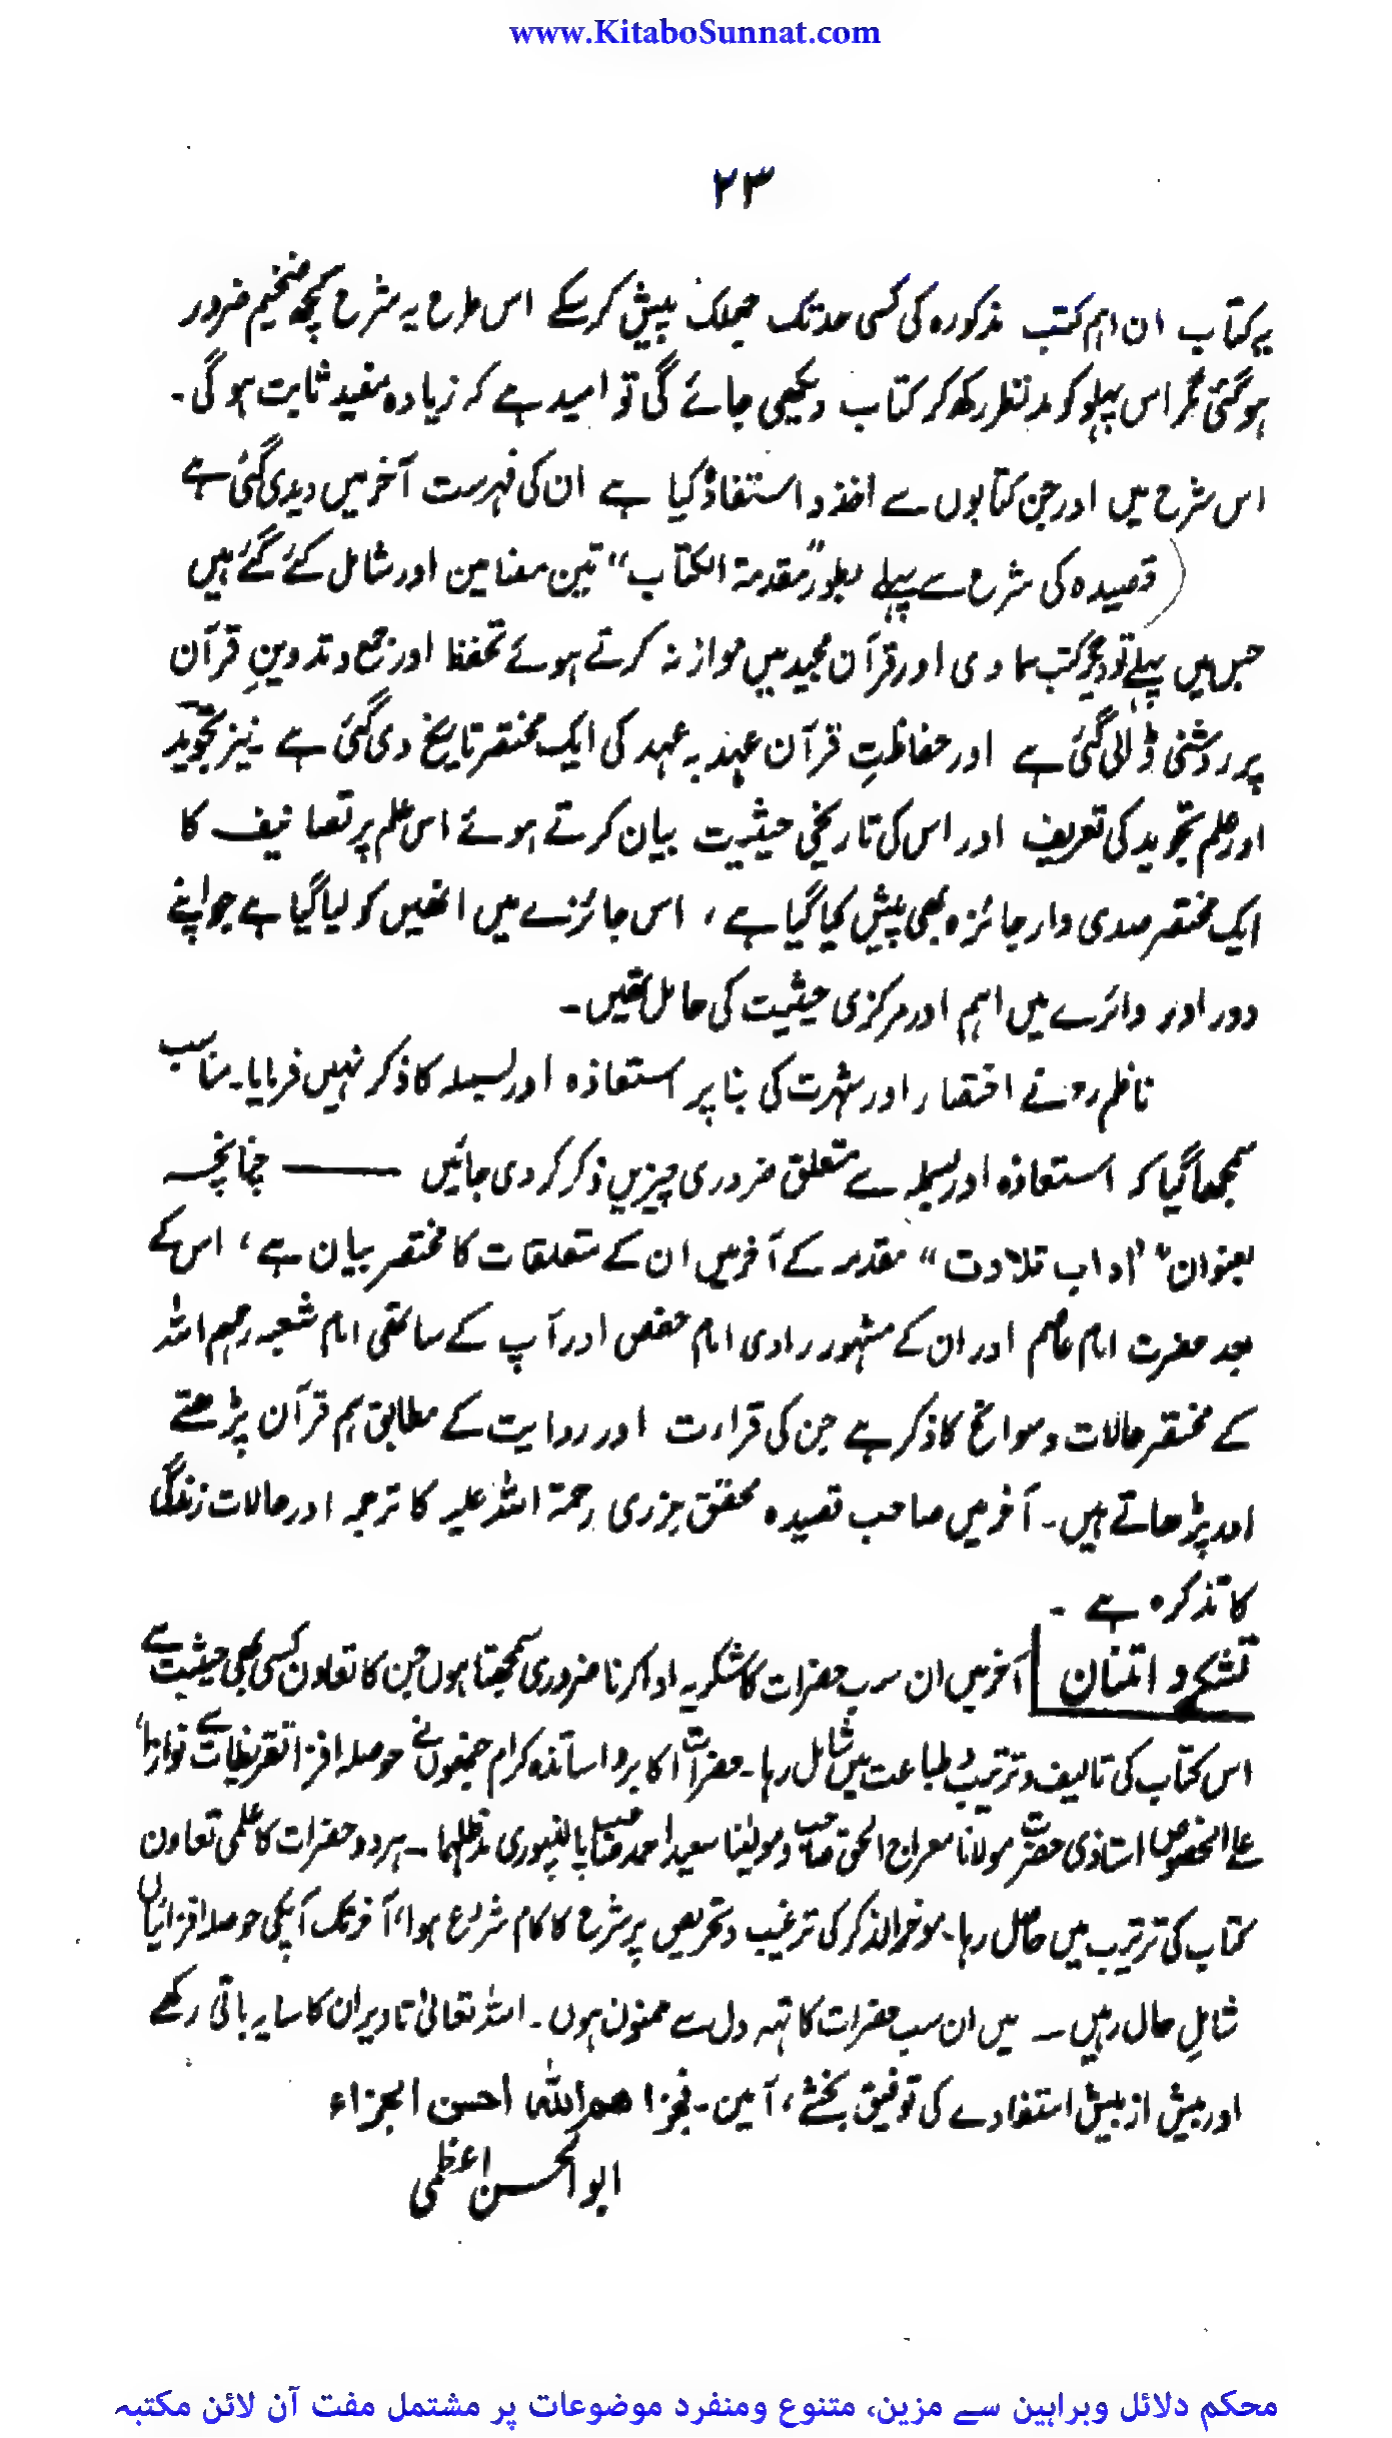 www.KitaboSunnat.com
۲۳
یہ کتاب ان اہم کتب مذکورہ کی کسی حد تک جھلک پیش کرسکے اس طرح یہ شرح کچھ ضخیم ضرور
ہوگئی مگر اس پہلو کو مدنظر رکھ کر کتاب دیکھی جائے گی تو امید ہے کہ زیادہ مفید ثابت ہوگی۔
اس شرح میں اور جن کتابوں سے اخذ و استفادہ کیا ہے ان کی فہرست آخر میں دیدی گئی ہے
(قصیدہ کی شرح سے پہلے بطور "مقدمۃ الکتاب" تین مضامین اور شامل کئے گئے ہیں
جس میں پہلے تو دیگر کتب سماوی اور قرآن مجید میں موازنہ کرتے ہوئے تحفظ اور جمع و تدوینِ قرآن
پر روشنی ڈالی گئی ہے اور حفاظتِ قرآن عہد بہ عہد کی ایک مختصر تاریخ دی گئی ہے ۔ نیز تجوید
اور علم تجوید کی تعریف اور اس کی تاریخی حیثیت بیان کرتے ہوئے اس علم پر تصانیف کا
ایک مختصر صدی وار جائزہ بھی پیش کیا گیا ہے ، اس جائزے میں انھیں کو لیا گیا ہے جو اپنے
دور اور دائرے میں اہم اور مرکزی حیثیت کی حامل تھیں۔
ناظم رح نے اختصار اور شہرت کی بنا پر استعاذہ اور بسملہ کا ذکر نہیں فرمایا۔ مناسب
سمجھا گیا کہ استعاذہ اور بسملہ سے متعلق ضروری چیزیں ذکر کردی جائیں ——— چنانچہ
بعنوان "آداب تلاوت" مقدمہ کے آخر میں ان کے متعلقات کا مختصر بیان ہے ، اس کے
بعد حضرت امام عاصم اور ان کے مشہور راوی امام حفص اور آپ کے ساتھی امام شعبہ رحمہم اللہ
کے مختصر حالات و سوانح کا ذکر ہے جن کی قراءت اور روایت کے مطابق ہم قرآن پڑھتے
اور پڑھاتے ہیں۔ آخر میں صاحب قصیدہ محقق جزری رحمۃ اللہ علیہ کا ترجمہ اور حالات زندگی
کا تذکرہ ہے ۔
تشکر و امتنان آخر میں ان سب حضرات کا شکریہ ادا کرنا ضروری سمجھتا ہوں جن کا تعاون کسی بھی حیثیت سے
اس کتاب کی تالیف و ترتیب و طباعت میں شامل رہا۔ حضرات اکابر و اساتذہ کرام جنھوں نے حوصلہ افزا تقریظات سے نوازا،
علی الخصوص استاذی حضرت مولانا معراج الحق صاحب و مولینا سعید احمد صاحب پالنپوری مدظلہما ۔ ہر دو حضرات کا علمی تعاون
کتاب کی ترتیب میں حاصل رہا۔ موخر الذکر کی ترغیب و تحریص پر شرح کا کام شروع ہوا، آخر تک آپکی حوصلہ افزائیاں
شاملِ حال رہیں ۔ میں ان سب حضرات کا تہہ دل سے ممنون ہوں۔ اللہ تعالیٰ تا دیر ان کا سایہ باقی رکھے
اور بیش از بیش استفادے کی توفیق بخشے، آمین۔ فجزاھم اللہ احسن الجزاء
ابوالحسن اعظمی
محکم دلائل وبراہین سے مزین، متنوع ومنفرد موضوعات پر مشتمل مفت آن لائن مکتبہ